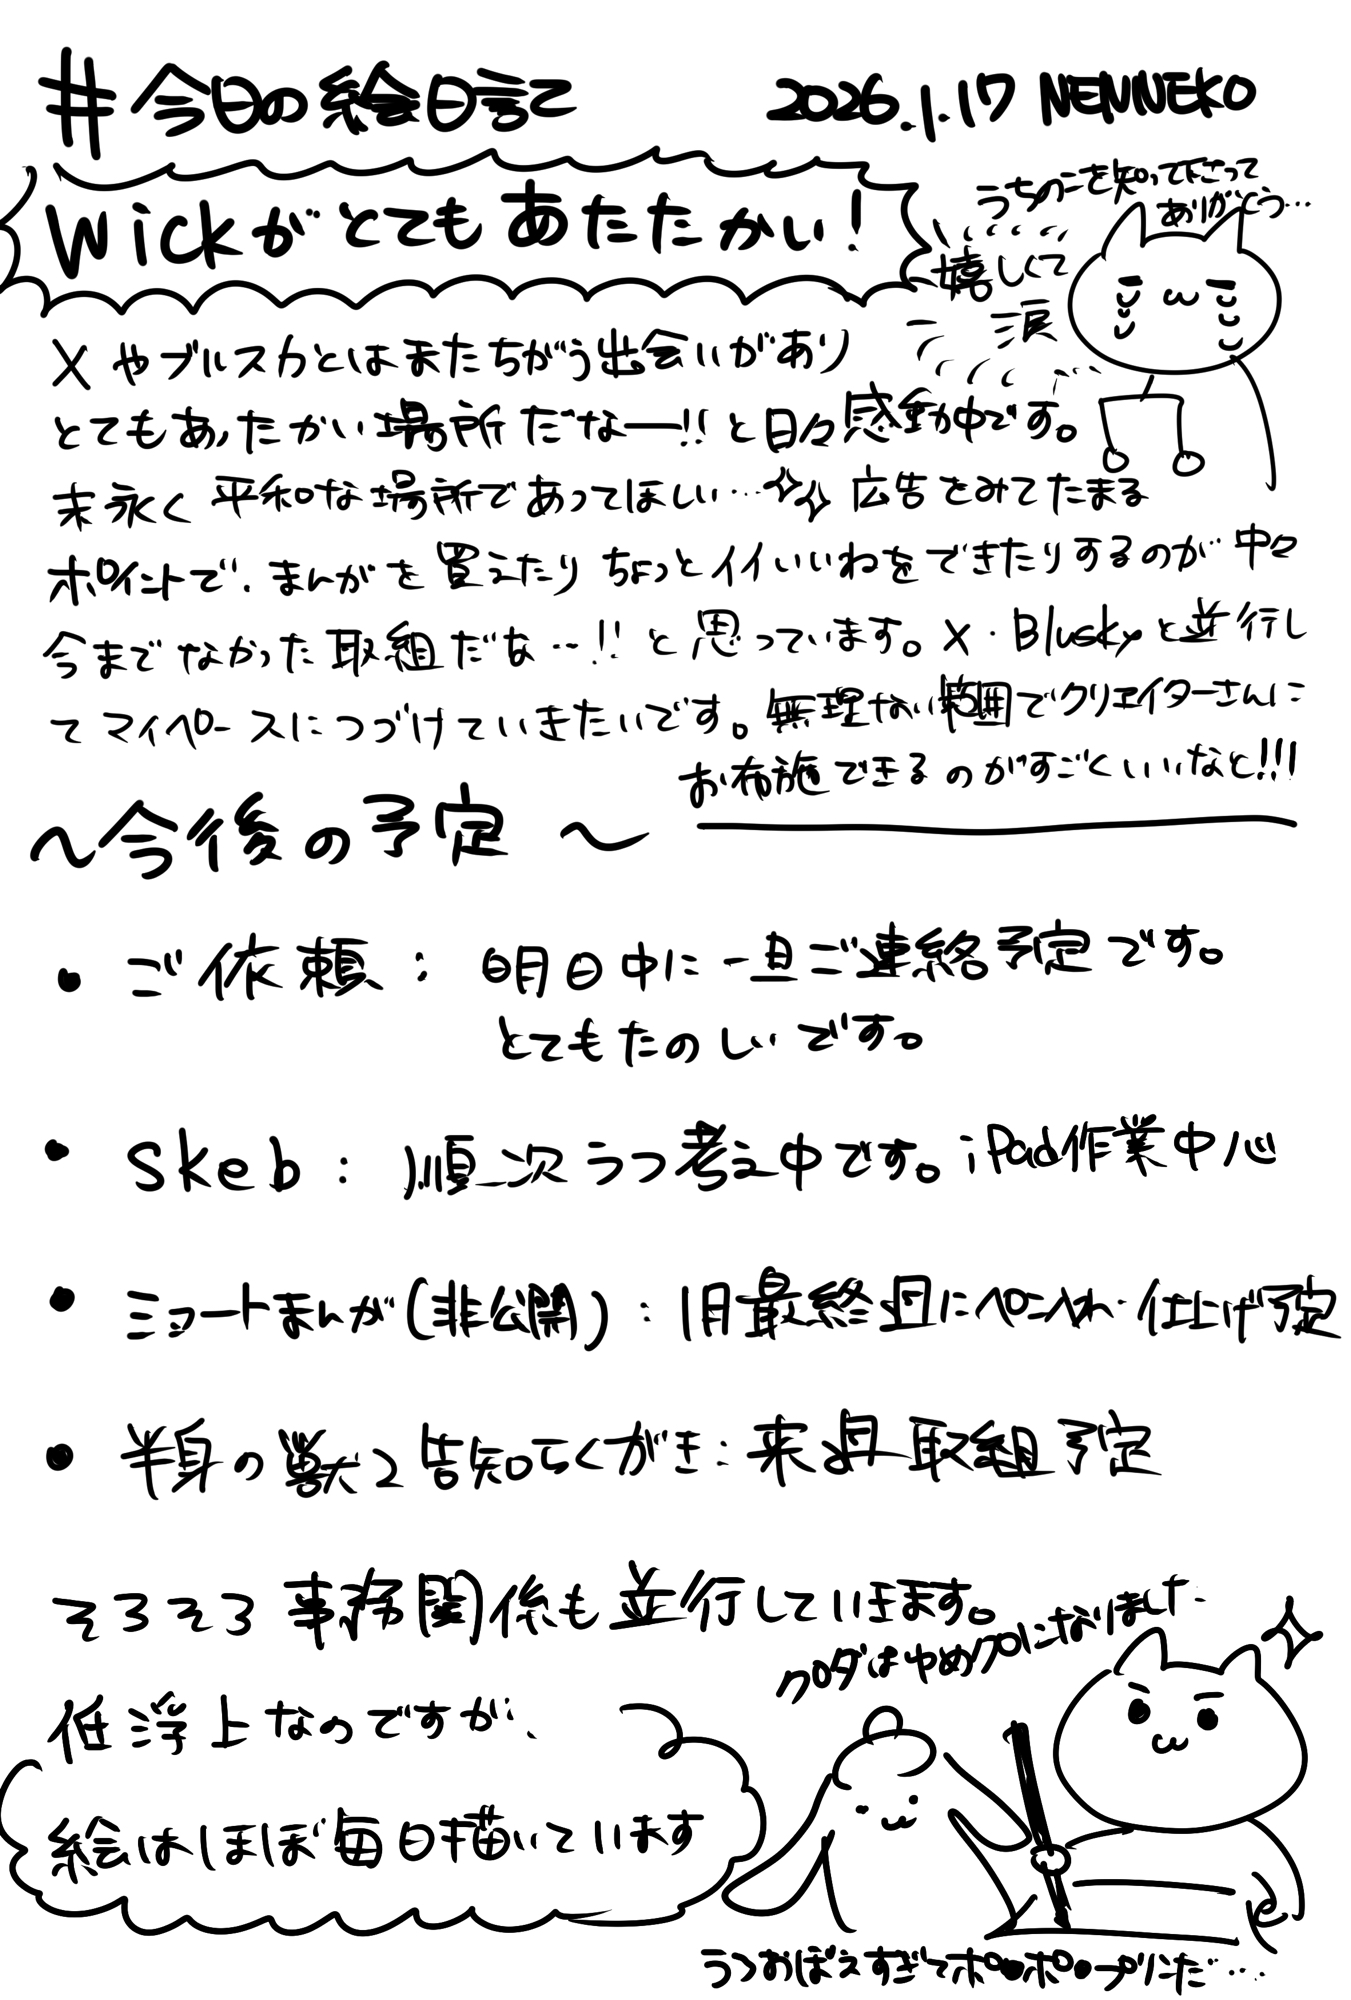 #今日の絵日記
2026.1.17 NENNEKO
Wickがとてもあたたかい！
うちのこを知って下さって
ありがとう…
嬉しくて
涙
Xやブルスカとはまたちがう出会いがあり
とてもあったかい場所だなー!!と日々感動中です。
末永く平和な場所であってほしい…✧✧ 広告をみてたまる
ポイントで、まんがを買えたりちょっとイイいいねをできたりするのが中々
今までなかった取組だな…!!と思っています。X・Bluskyと並行し
てマイペースにつづけていきたいです。無理ない範囲でクリエイターさんに
お布施できるのがすごくいいなと!!!
～今後の予定～
・ご依頼：明日中に一旦ご連絡予定です。
とてもたのしいです。
・skeb：順次うつ考え中です。iPad作業中心
・ショートまんが(非公開)：1月最終週にペン入れ・仕上げ予定
・半身の獣2告知らくがき：来週取組予定
そろそろ事務関係も並行していきます。
低浮上なのですが、
絵はほぼ毎日描いています
クロダはゆめクロになりました
うろおぼえすぎてポ●ポ●プリンだ…